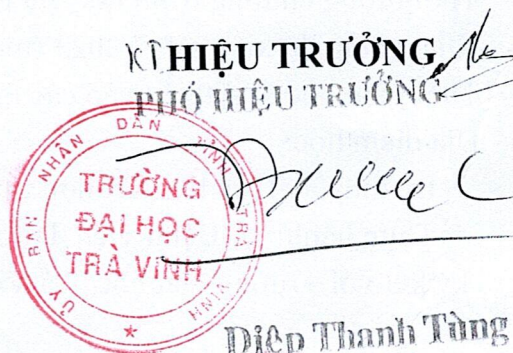 KT HIỆU TRƯỞNG
PHÓ HIỆU TRƯỞNG
ỦY BAN NHÂN DÂN TỈNH TRÀ VINH
TRƯỜNG
ĐẠI HỌC
TRÀ VINH
★
Diệp Thanh Tùng